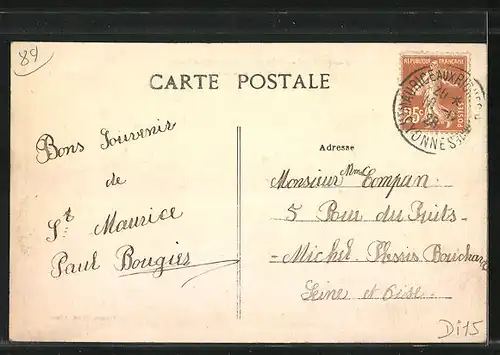 89
CARTE POSTALE
RÉPUBLIQUE FRANÇAISE
25c POSTES
Bons Souvenirs
de
St Maurice
Paul Bougies
Adresse
Monsieur Mme Compan
5 Rue du Puits-
-Michel. Plessis Bouchard
Seine et Oise.
Di15